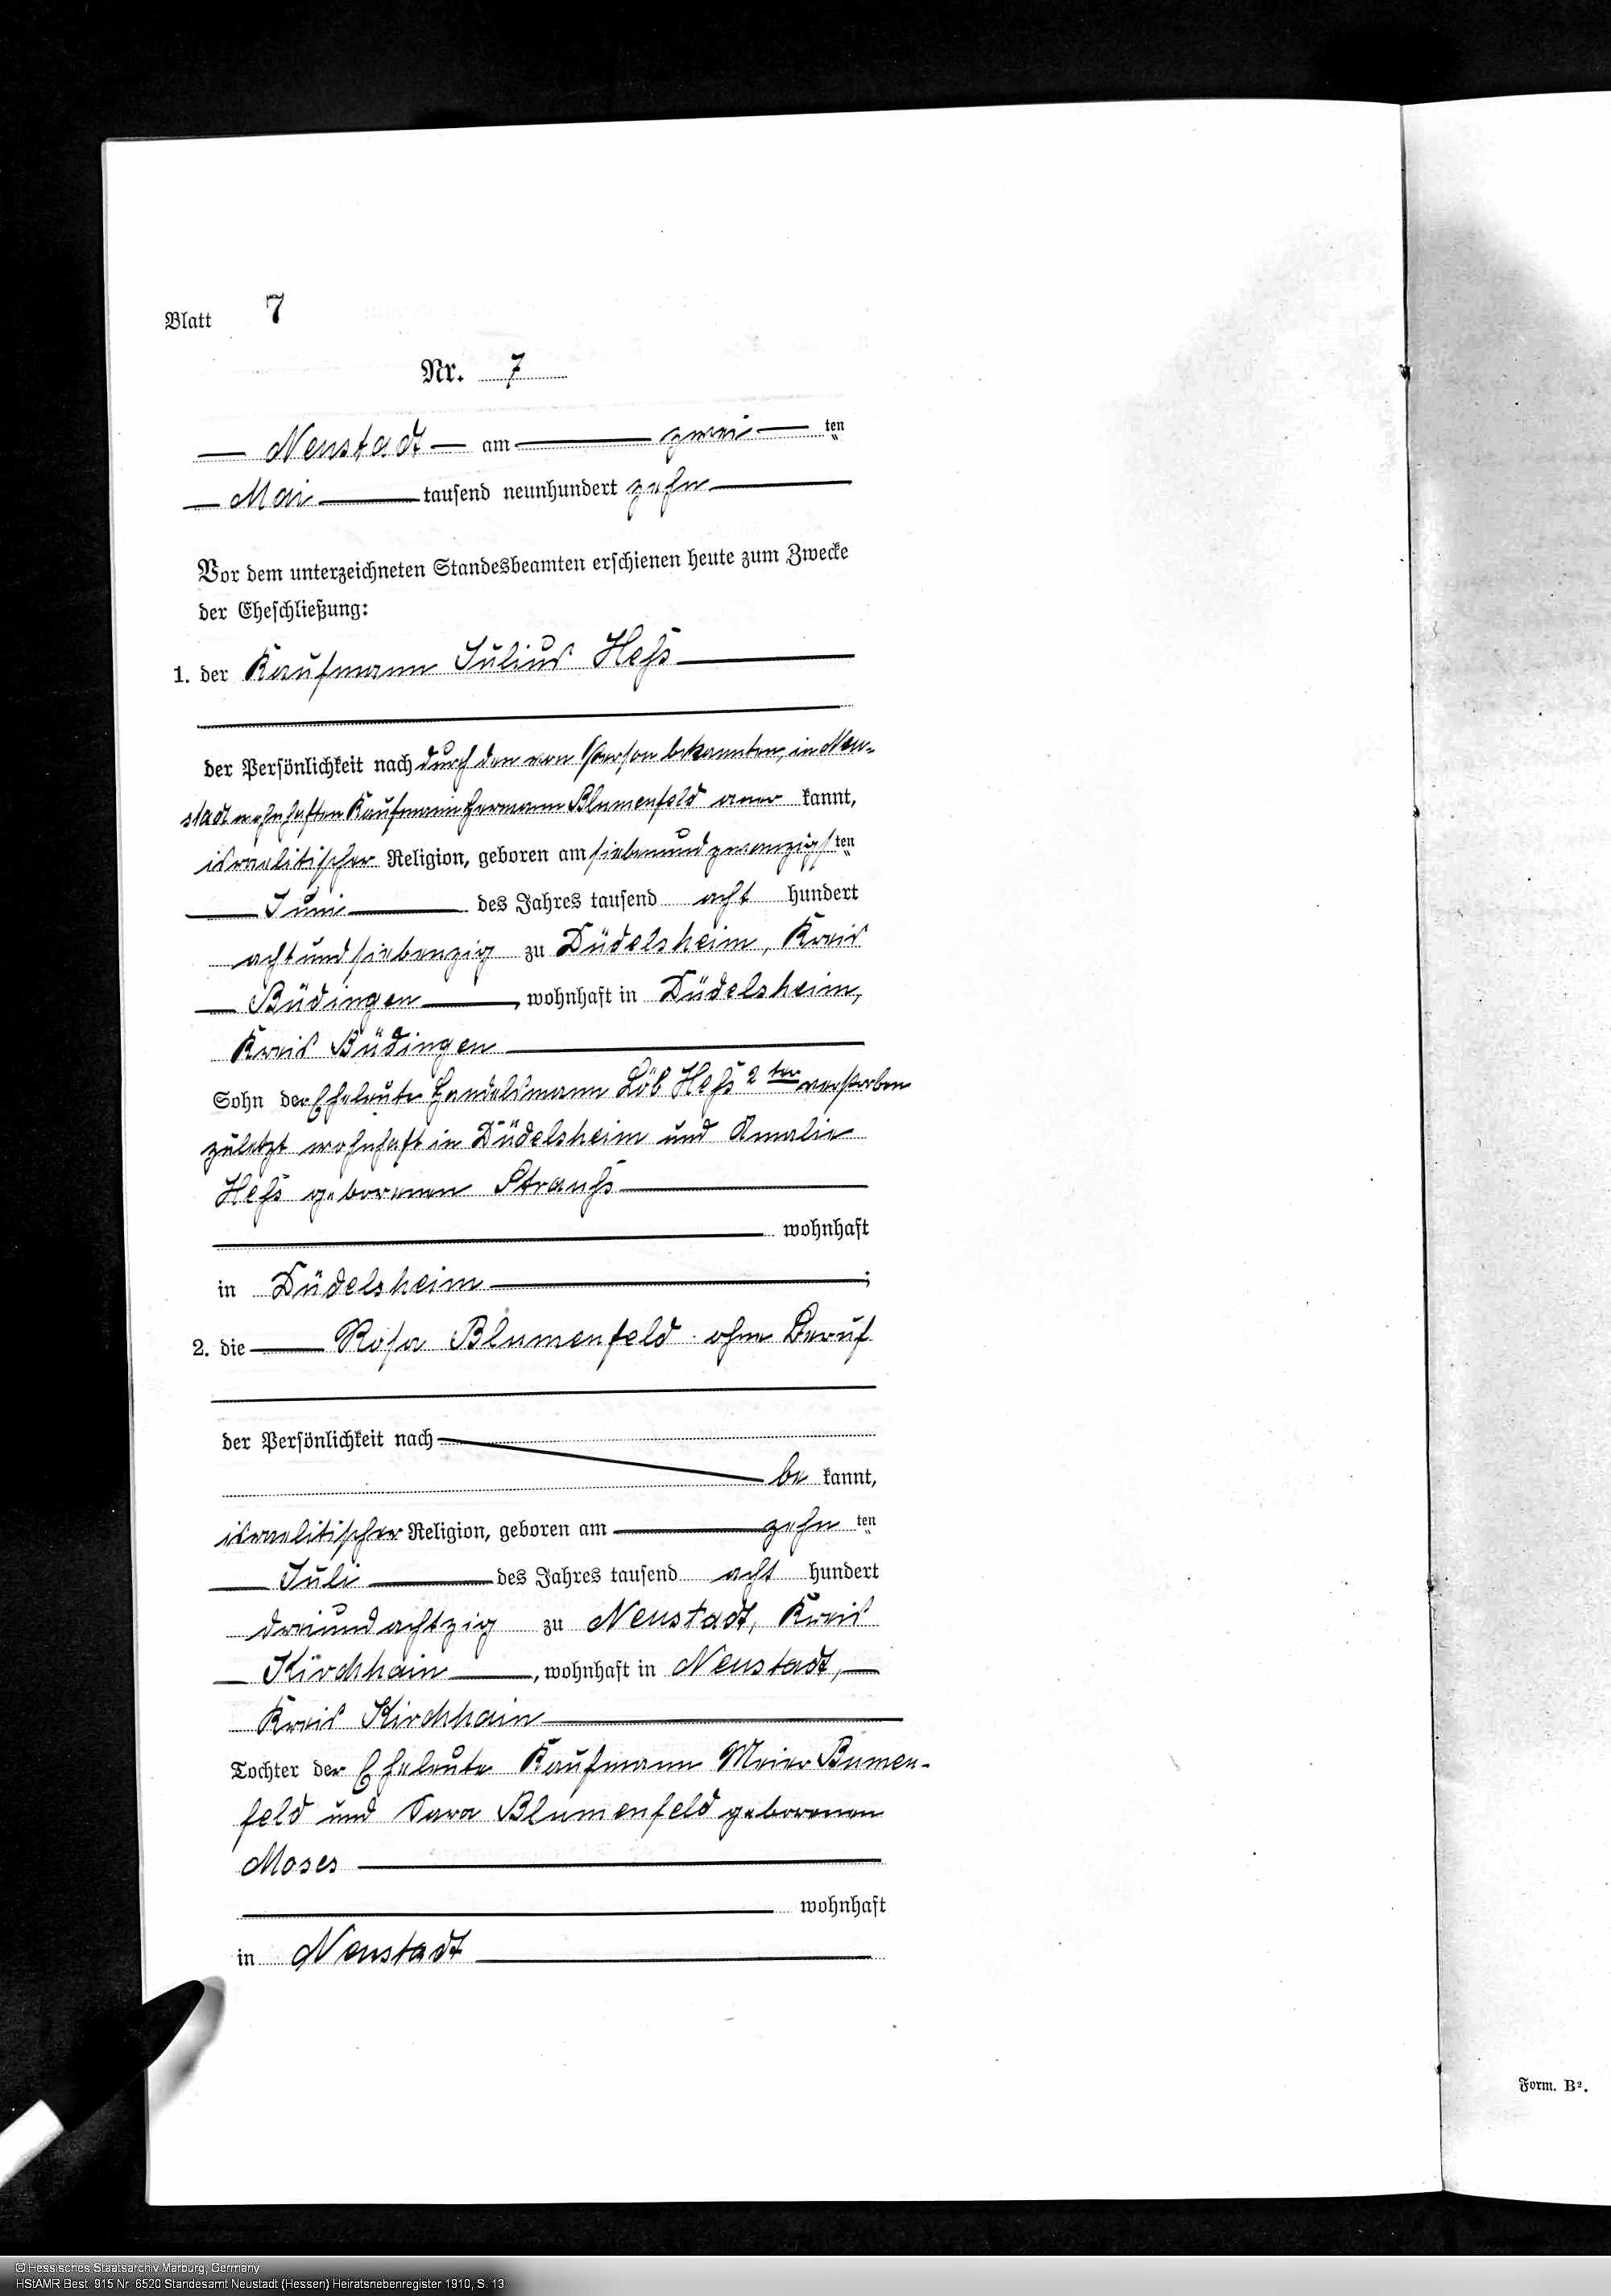 Blatt 7
Nr. 7
Neustadt am zwei ten
Mai tausend neunhundert zehn
Vor dem unterzeichneten Standesbeamten erschienen heute zum Zwecke
der Eheschließung:
1. der Kaufmann Julius Heß
der Persönlichkeit nach durch den von Person bekannten, in Neu-
stadt wohnhaften Kaufmann Hermann Blumenfeld aner kannt,
israelitischer Religion, geboren am siebenundzwanzigs ten
Juni des Jahres tausend acht hundert
achtundsiebenzig zu Düdelsheim, Kreis
Büdingen, wohnhaft in Düdelsheim,
Kreis Büdingen
Sohn der Eheleute Handelsmann Löb Heß 2ter verstorben
zuletzt wohnhaft in Düdelsheim und Amalie
Heß geborenen Strauß
wohnhaft
in Düdelsheim;
2. die Rosa Blumenfeld ohne Beruf
der Persönlichkeit nach
be kannt,
israelitischer Religion, geboren am zehn ten
Juli des Jahres tausend acht hundert
dreiundachtzig zu Neustadt, Kreis
Kirchhain, wohnhaft in Neustadt,
Kreis Kirchhain
Tochter der Eheleute Kaufmann Meier Bumen-
feld und Sara Blumenfeld geborenen
Moses
wohnhaft
in Neustadt
Form. B².
© Hessisches Staatsarchiv Marburg, Germany
HStAMR Best. 915 Nr. 6520 Standesamt Neustadt (Hessen) Heiratsnebenregister 1910, S. 13